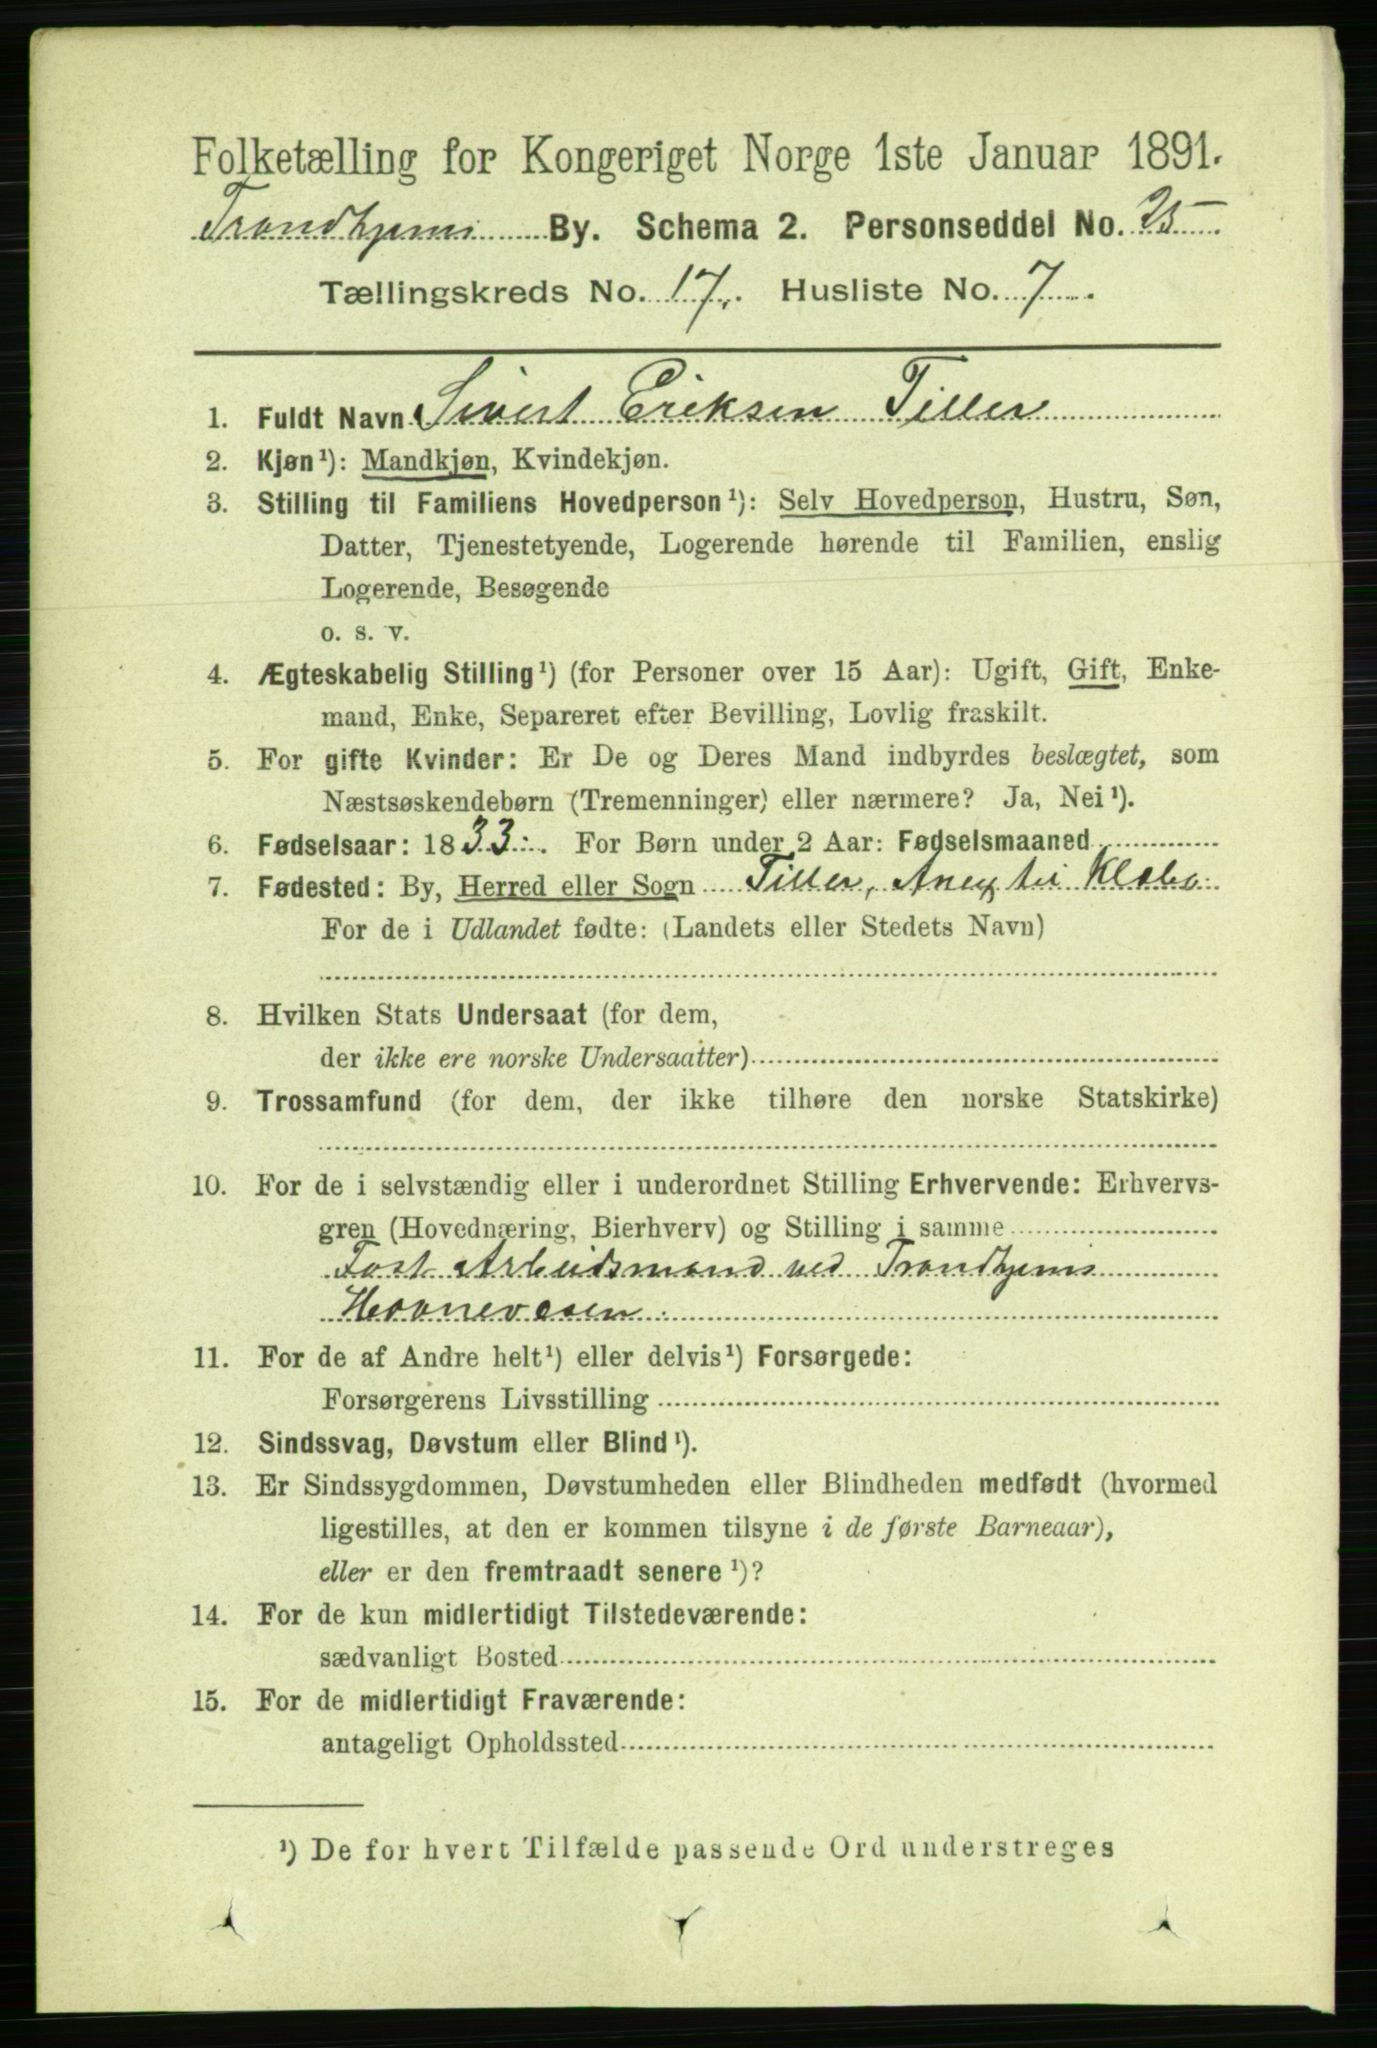 Folketælling for Kongeriget Norge 1ste Januar 1891.
Trondhjems By. Schema 2. Personseddel No. 25
Tællingskreds No. 17. Husliste No. 7
1. Fuldt Navn Sivert Eriksen Tiller
2. Kjøn¹): Mandkjøn, Kvindekjøn.
3. Stilling til Familiens Hovedperson¹): Selv Hovedperson, Hustru, Søn,
Datter, Tjenestetyende, Logerende hørende til Familien, enslig
Logerende, Besøgende
o. s. v.
4. Ægteskabelig Stilling¹) (for Personer over 15 Aar): Ugift, Gift, Enke-
mand, Enke, Separeret efter Bevilling, Lovlig fraskilt.
5. For gifte Kvinder: Er De og Deres Mand indbyrdes beslægtet, som
Næstsøskendebørn (Tremenninger) eller nærmere? Ja, Nei¹).
6. Fødselsaar: 1833. For Børn under 2 Aar: Fødselsmaaned
7. Fødested: By, Herred eller Sogn Tiller, Anex til Klæbo
For de i Udlandet fødte: (Landets eller Stedets Navn)
8. Hvilken Stats Undersaat (for dem,
der ikke ere norske Undersaatter)
9. Trossamfund (for dem, der ikke tilhøre den norske Statskirke)
10. For de i selvstændig eller i underordnet Stilling Erhvervende: Erhvervs-
gren (Hovednæring, Bierhverv) og Stilling i samme
Fast Arbeidsmand ved Trondhjems
Havnevæsen
11. For de af Andre helt¹) eller delvis¹) Forsørgede:
Forsørgerens Livsstilling
12. Sindssvag, Døvstum eller Blind¹).
13. Er Sindssygdommen, Døvstumheden eller Blindheden medfødt (hvormed
ligestilles, at den er kommen tilsyne i de første Barneaar),
eller er den fremtraadt senere¹)?
14. For de kun midlertidigt Tilstedeværende:
sædvanligt Bosted
15. For de midlertidigt Fraværende:
antageligt Opholdssted
¹) De for hvert Tilfælde passende Ord understreges